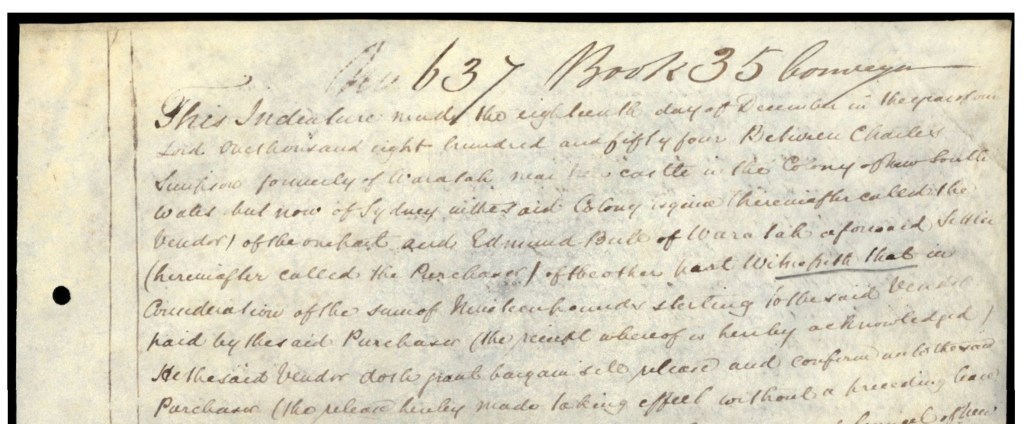 No 637 Book 35 Conveyce
This Indenture made the eighteenth day of December in the year of our
Lord Onethousand eight hundred and fifty four Between Charles
Simpson formerly of Waratah near New castle in the Colony of New South
Wales but now of Sydney in the said Colony Esquire (hereinafter called the
Vendor) of the one part and Edmund Butt of Waratah aforesaid Settler
(hereinafter called the Purchaser) of the other part Witnesseth that in
Consideration of the sum of Nineteen pounds sterling to the said Vendor
paid by the said Purchaser (the receipt whereof is hereby acknowledged)
He the said Vendor doth grant bargain sell release and confirm unto the said
Purchaser (the release hereby made taking effect without a preceding lease
of New